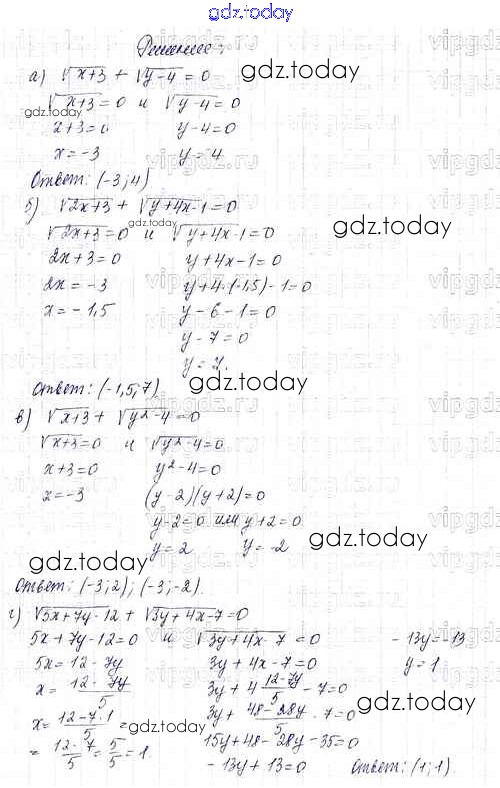 gdz.today
Решение:
а) √x+3 + √y-4 = 0
gdz.today
√x+3 = 0 и √y-4 = 0
gdz.today
x+3=0 y-4=0
x=-3 y=4
vipgdz.ru
Ответ: (-3;4)
б) √2x+3 + √y+4x-1 = 0
gdz.today
√2x+3 = 0 и √y+4x-1 = 0
gdz.today
2x+3=0 y+4x-1=0
2x=-3 y+4·(-1,5)-1=0
x=-1,5 y-6-1=0
y-7=0
y=7.
gdz.today
Ответ: (-1,5;7)
в) √x+3 + √y²-4 = 0
√x+3=0 и √y²-4=0
x+3=0 y²-4=0
gdz.today
x=-3 (y-2)(y+2)=0
y-2=0 или y+2=0
y=2 y=-2
gdz.today
gdz.today
Ответ: (-3;2); (-3;-2).
г) √5x+7y-12 + √3y+4x-7=0
5x+7y-12=0 и √3y+4x-7=0 -13y=-13
5x=12-7y 3y+4x-7=0 y=1
x=12-7y/5 3y+4 12-7y/5 -7=0
gdz.today
x=12-7·1/5= 3y+48-28y/5-7=0
gdz.today
=12-7/5=5/5=1. 15y+48-28y-35=0
-13y+13=0 Ответ: (1;1).